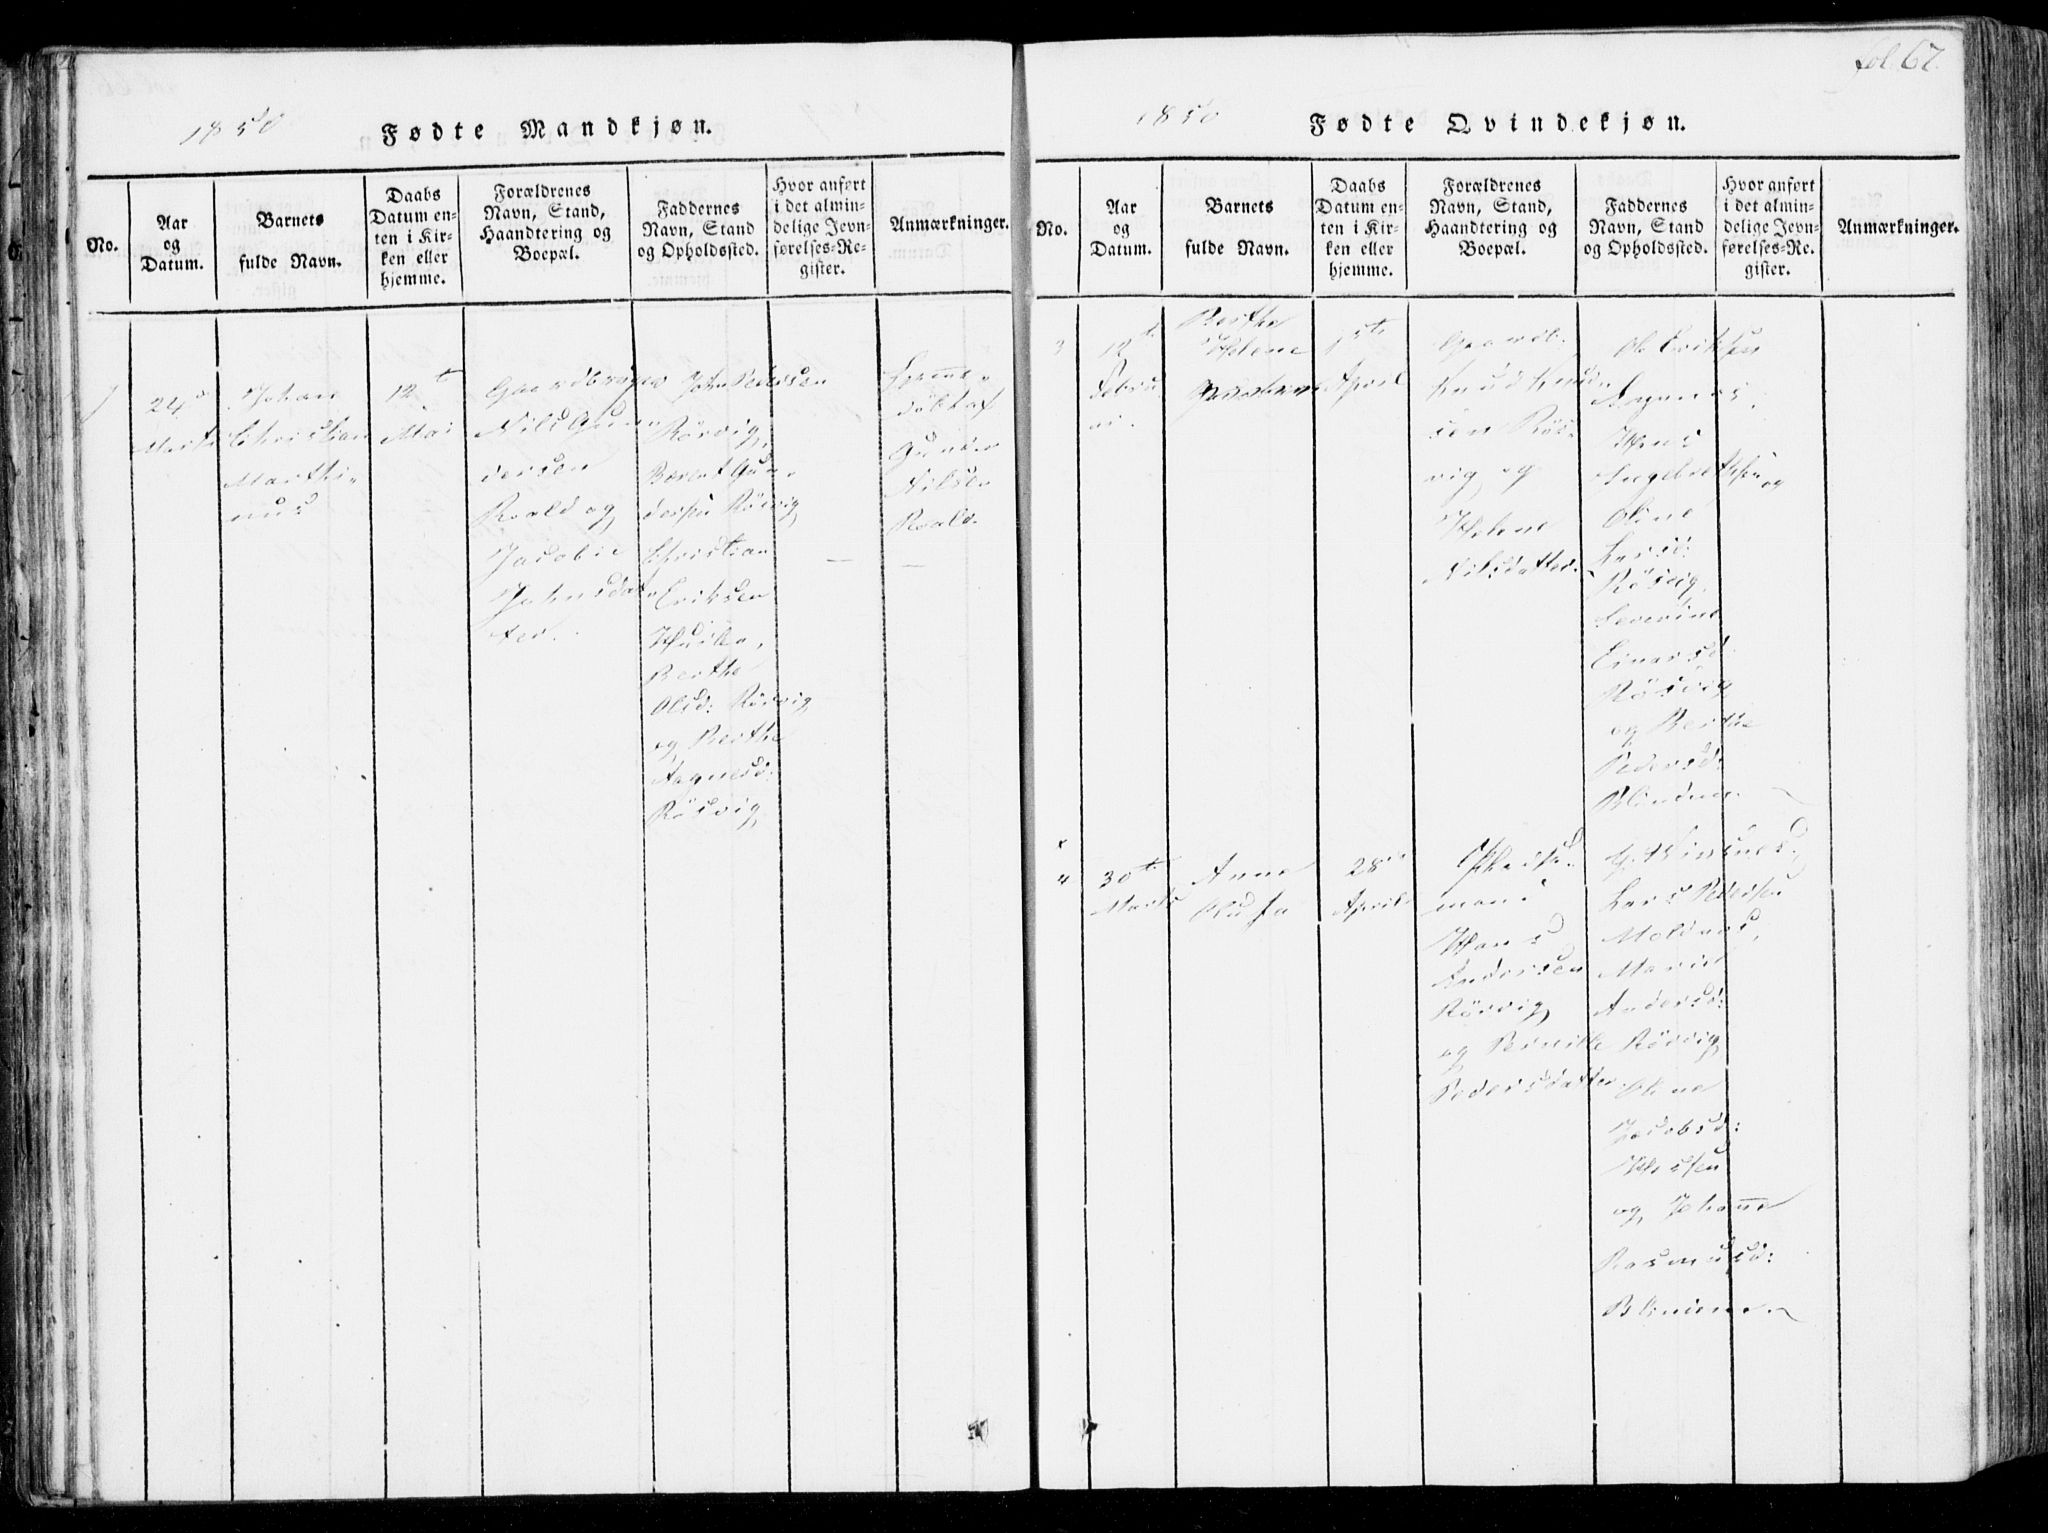 1850
Fødte Mandkjøn.
No.
Aar
og
Datum.
Barnets
fulde Navn.
Daabs
Datum en-
ten i Kir-
ken eller
hjemme.
Forældrenes
Navn, Stand,
Haandtering og
Boepæl.
Faddernes
Navn, Stand
og Opholdssted.
Hvor anført
i det almin-
delige Jevn-
førelses-Re-
gister.
Anmærkninger.
24
Marts
Johan
Christian
Marthi-
nus
12t
Mai
Gaardbruger
Nils Gun-
dersen
Roald og
Jacobie
Johnsdat-
ter.
John Pedersen
Rörvig,
Berent Gun-
dersen Rörvig
Christian
Eriksen
Berthe
Olsd: Rörvig
og Berthe
Aagnesd:
Rösvig
döbt af
Gunder
Nilsen
Roald.
fol. 67.
1850
Fødte Qvindekjøn.
No.
Aar
og
Datum.
Barnets
fulde Navn.
Daabs
Datum en-
ten i Kir-
ken eller
hjemme.
Forældrenes
Navn, Stand,
Haandtering og
Boepæl.
Faddernes
Navn, Stand
og Opholdssted.
Hvor anført
i det almin-
delige Jevn-
førelses-Re-
gister.
Anmærkninger.
3
12te
Febru
ar.
Berthe
Helene
1ste
April
Gaardb.
Knud Knud-
sen Rös-
vig og
Helene
Nilsdatter.
Ole Eriksen
Hans
Ingebretsen og
Oline
Larsd:
Rösvig,
Severine
Einarsd:
Rösvig
og Berthe
Pedersd:
4
30t
Marts
Anne
Olufa
28de
April
mand
Hans
Andersen
Rörvig
og Pernille
Pedersdatter
Lars Pedersen
Moldnæs,
Marie
Andersd:
Rörvig
Oline
Jacobsd:
og Johanne
Rasmusd: